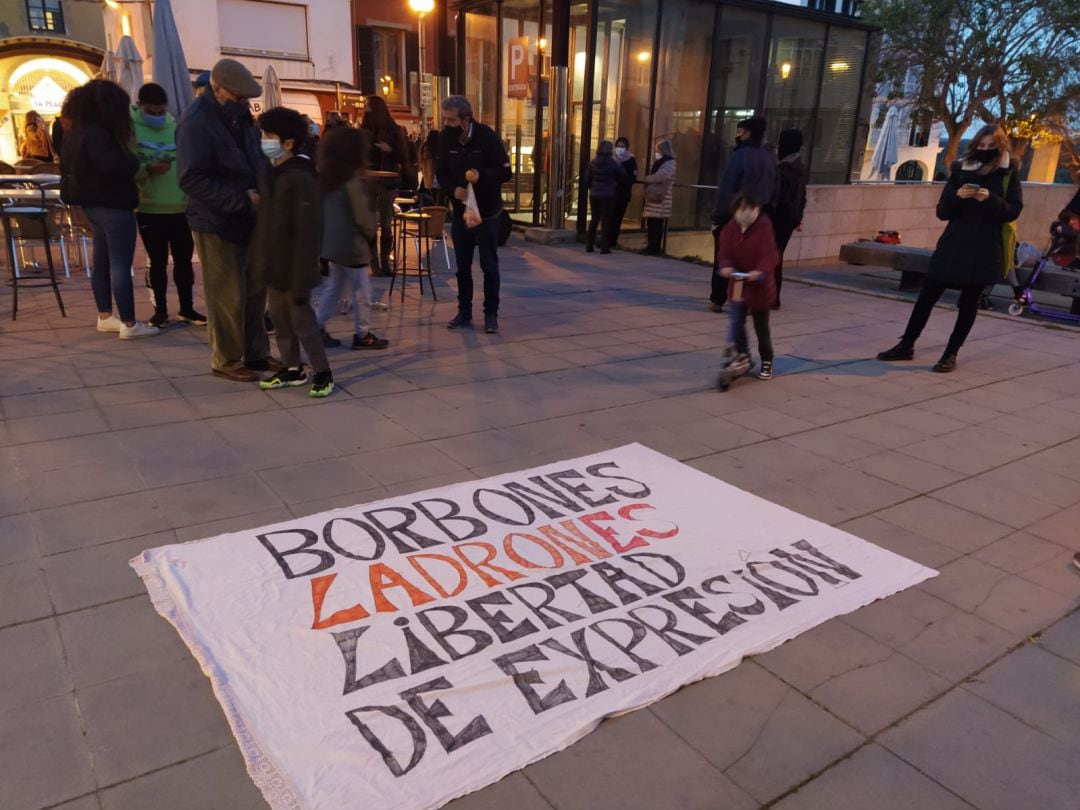 BORBONES
LADRONES
LIBERTAD
DE EXPRESIÓN
P
ENTRADA